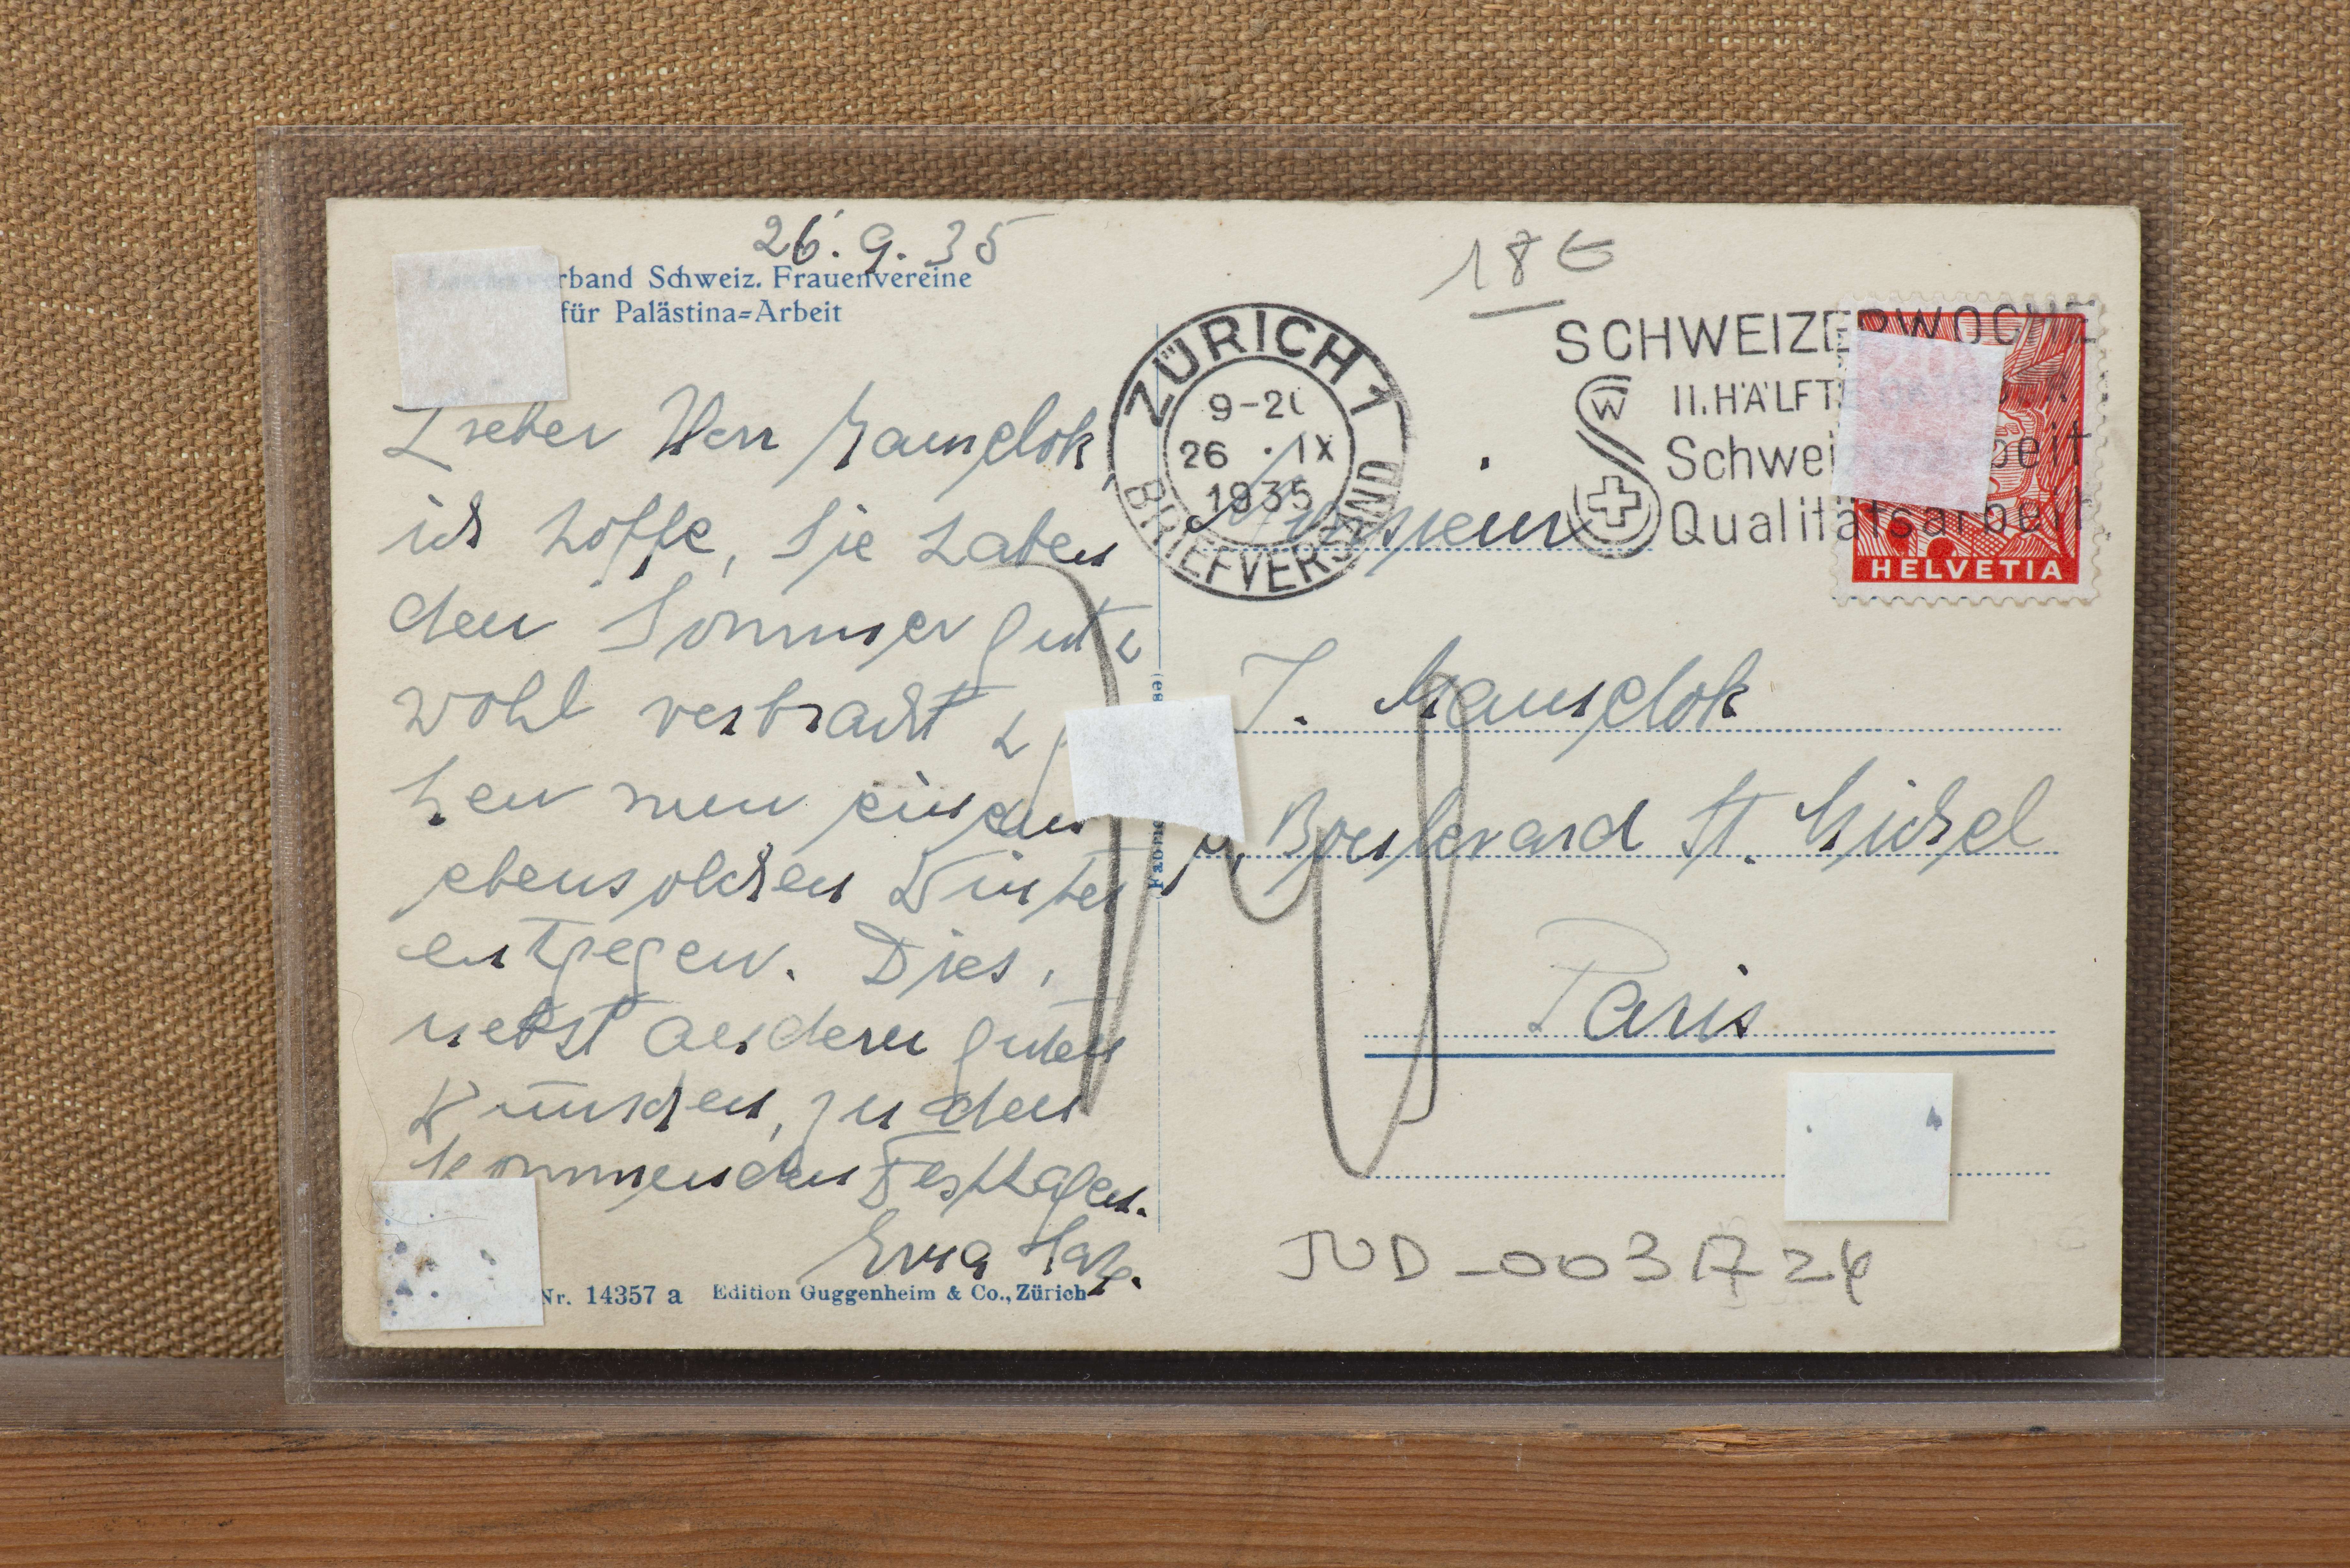 26.9.35
rband Schweiz. Frauenvereine
für Palästina=Arbeit
Lieber Herr
ich hoffe, Sie haben
den Sommer gut &
wohl verbracht &
hen nun einem
ebensolchen Winter
entgegen. Dies,
nebst andern guten
Wünschen, zu den
kommenden Festtagen.
Erna
Nr. 14357 a Edition Guggenheim & Co., Zürich
18 €
ZÜRICH 1
26 . IX
1935
BRIEFVERSAND
SCHWEIZERWOCHE
W
II. HÄLFTE OKTOBER
Schwei beit
Qualitätsarbeit
HELVETIA
Monsieur
J.
Boulevard St. Michel
Paris
JUD_0031724